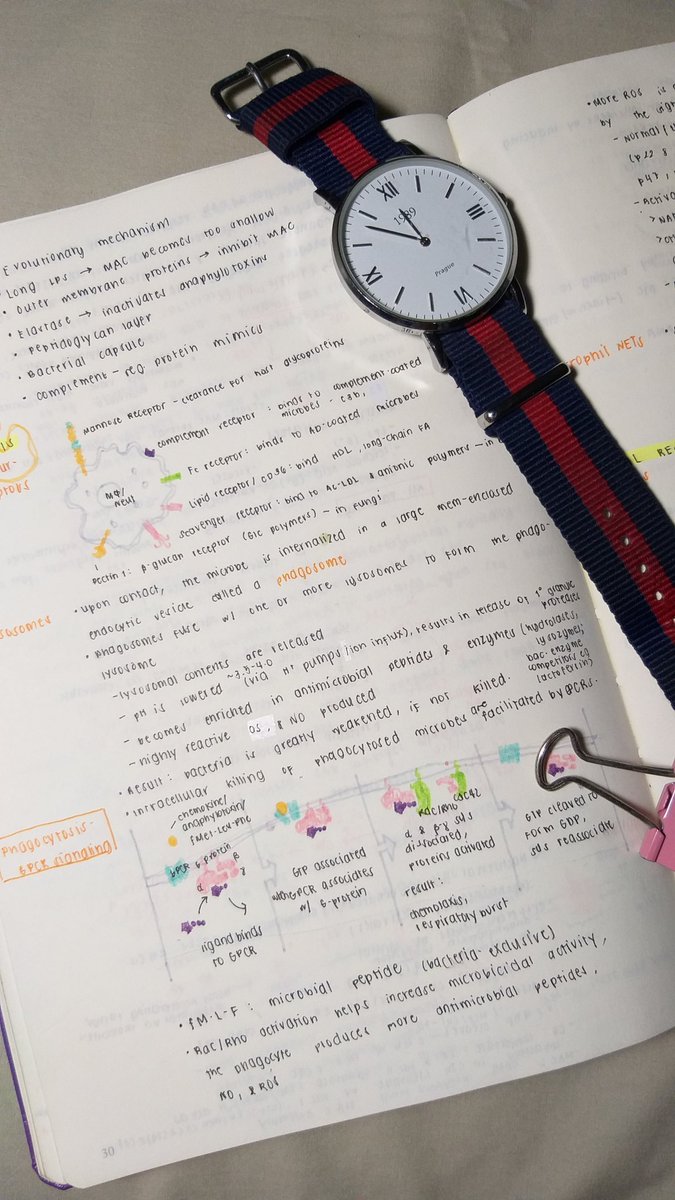 Evolutionary mechanism
Long LPS → MAC becomes too shallow
• Outer membrane proteins → inhibit MAC
• Elastase → inactivates anaphylotoxins
• Peptidoglycan layer
• Bacterial capsule
• complement-reg protein mimics
Mannose Receptor - clearance for host glycoproteins
complement receptor: binds to complement-coated
microbes - C3b,
Fc receptor: binds to AB-coated microbes
Lipid receptor/ CD36: bind HDL, long-chain FA
Scavenger receptor: bind to Ac-LDL & anionic polymers - in
MΦ/
Neut
Dectin 1: β-glucan receptor (Glc polymers) - in fungi
• Upon contact, the microbe is internalized in a large mem-enclosed
endocytic vesicle called a phagosome
• Phagosomes fuse w/ one or more lysosomes to form the phago-
lysosome
-lysosomal contents are released
- pH is lowered ~3.5-4.0 (via H⁺ pumps/ion influx), results in release of 1° granule
proteases
- becomes enriched in antimicrobial peptides & enzymes (hydrolases,
lysozymes;
bac. enzyme
competitory eg
lactoferrin)
- highly reactive OS, & NO produced
• Result: bacteria is greatly weakened, if not killed.
• Intracellular killing of phagocytosed microbes are facilitated by GPCRs.
Phagocytosis-
GPCR signaling
chemokine/
anaphylotoxin/
FMet-Leu-Phe
GPCR G protein
α β γ
ligand binds
to GPCR
GTP associated
with GPCR associates
w/ G-protein
Rac/Rho
CDC42
α & βγ sus
dissociated,
proteins activated
result:
chemotaxis,
respiratory burst
GTP cleaved to
form GDP,
sus reassociate
• fM-L-F: microbial peptide (bacteria-exclusive)
• Rac/Rho activation helps increase microbicidal activity,
the phagocyte produces more antimicrobial peptides,
NO, & ROS
30
XII
III
VI
IX
1989
Prague
• More ROS is
by the
- Normal
p47,
- Activa